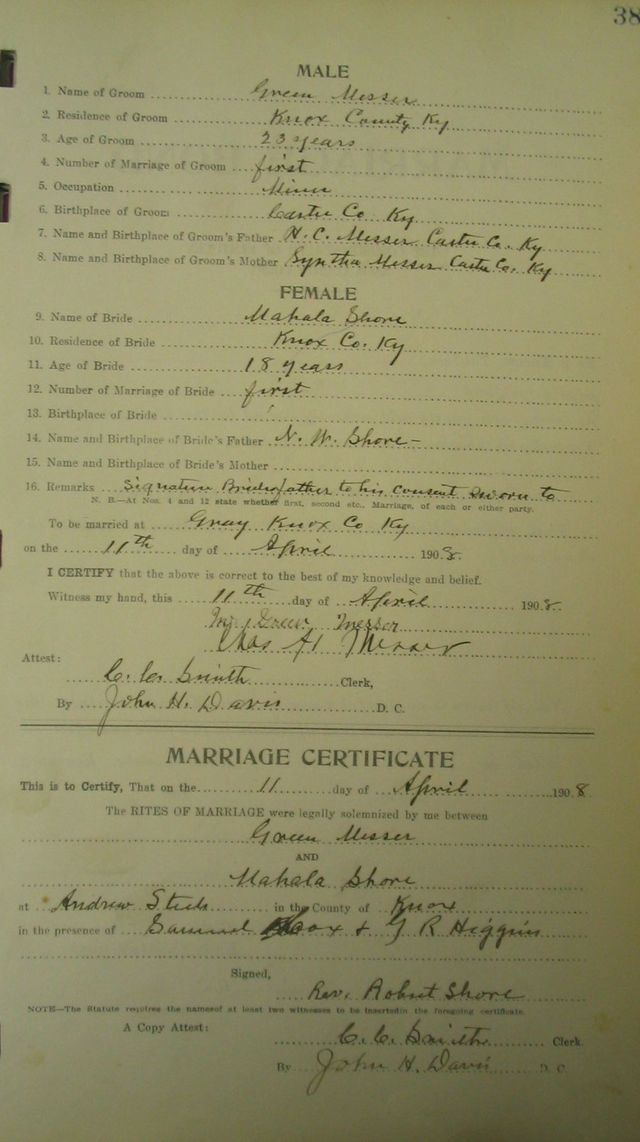 38
MALE
1. Name of Groom Green Messer
2. Residence of Groom Knox County Ky
3. Age of Groom 23 years
4. Number of Marriage of Groom first
5. Occupation Miner
6. Birthplace of Groom Carter Co. Ky
7. Name and Birthplace of Groom's Father H. C. Messer Carter Co. Ky
8. Name and Birthplace of Groom's Mother Syntha Messer Carter Co. Ky
FEMALE
9. Name of Bride Mahala Shore
10. Residence of Bride Knox Co. Ky
11. Age of Bride 18 years
12. Number of Marriage of Bride first
13. Birthplace of Bride
14. Name and Birthplace of Bride's Father N. W. Shore -
15. Name and Birthplace of Bride's Mother
16. Remarks Signature Brides father to his consent sworn to
N. B.—At Nos. 4 and 12 state whether first, second etc., Marriage, of each or either party.
To be married at Gray Knox Co Ky
on the 11th day of April 1908.
I CERTIFY that the above is correct to the best of my knowledge and belief.
Witness my hand, this 11th day of April 1908.
Green Messer
Chas H Messer
Attest:
C. C. Smith Clerk,
By John H. Davis D. C.
MARRIAGE CERTIFICATE
This is to Certify, That on the 11 day of April 1908
The RITES OF MARRIAGE were legally solemnized by me between
Green Messer
AND
Mahala Shore
at Andrew in the County of Knox
in the presence of Samuel Cox & G R Higgins
Signed,
Rev. Robert Shore
NOTE—The Statute requires the namesof at least two witnesses to be insertedin the foregoing certificate.
A Copy Attest:
C. C. Smith Clerk
By John H. Davis D. C.